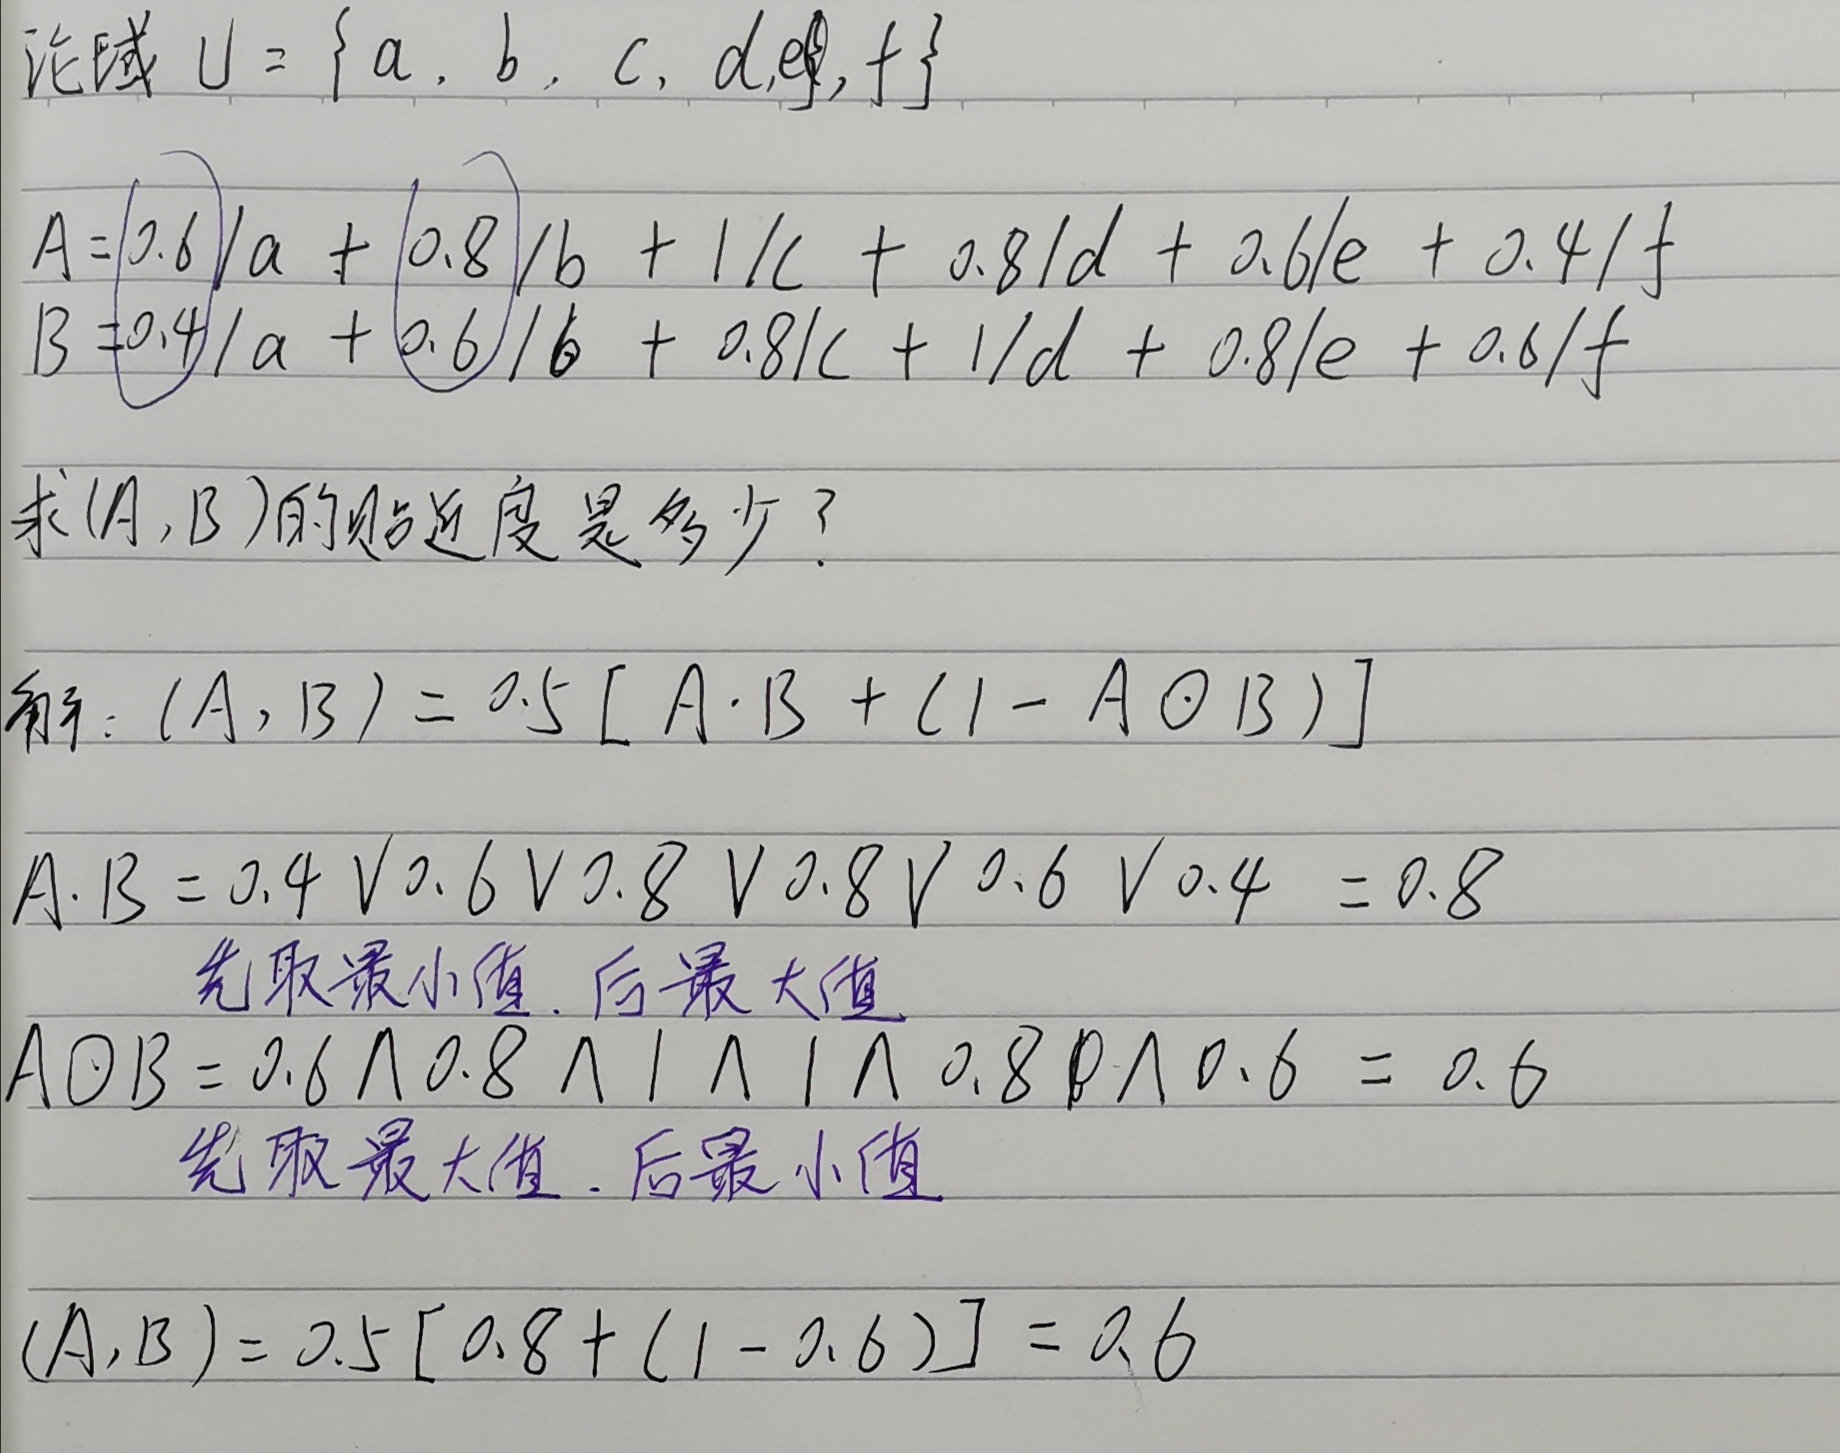 论域 U = {a, b, c, d, e, f}
A = 0.6/a + 0.8/b + 1/c + 0.8/d + 0.6/e + 0.4/f
B = 0.4/a + 0.6/b + 0.8/c + 1/d + 0.8/e + 0.6/f
求(A,B)的贴近度是多少?
解: (A,B) = 0.5[A·B + (1 - A⊙B)]
A·B = 0.4 ∨ 0.6 ∨ 0.8 ∨ 0.8 ∨ 0.6 ∨ 0.4 = 0.8
先取最小值.后最大值
A⊙B = 0.6 ∧ 0.8 ∧ 1 ∧ 1 ∧ 0.8 ∧ 0.6 = 0.6
先取最大值.后最小值
(A,B) = 0.5[0.8 + (1 - 0.6)] = 0.6